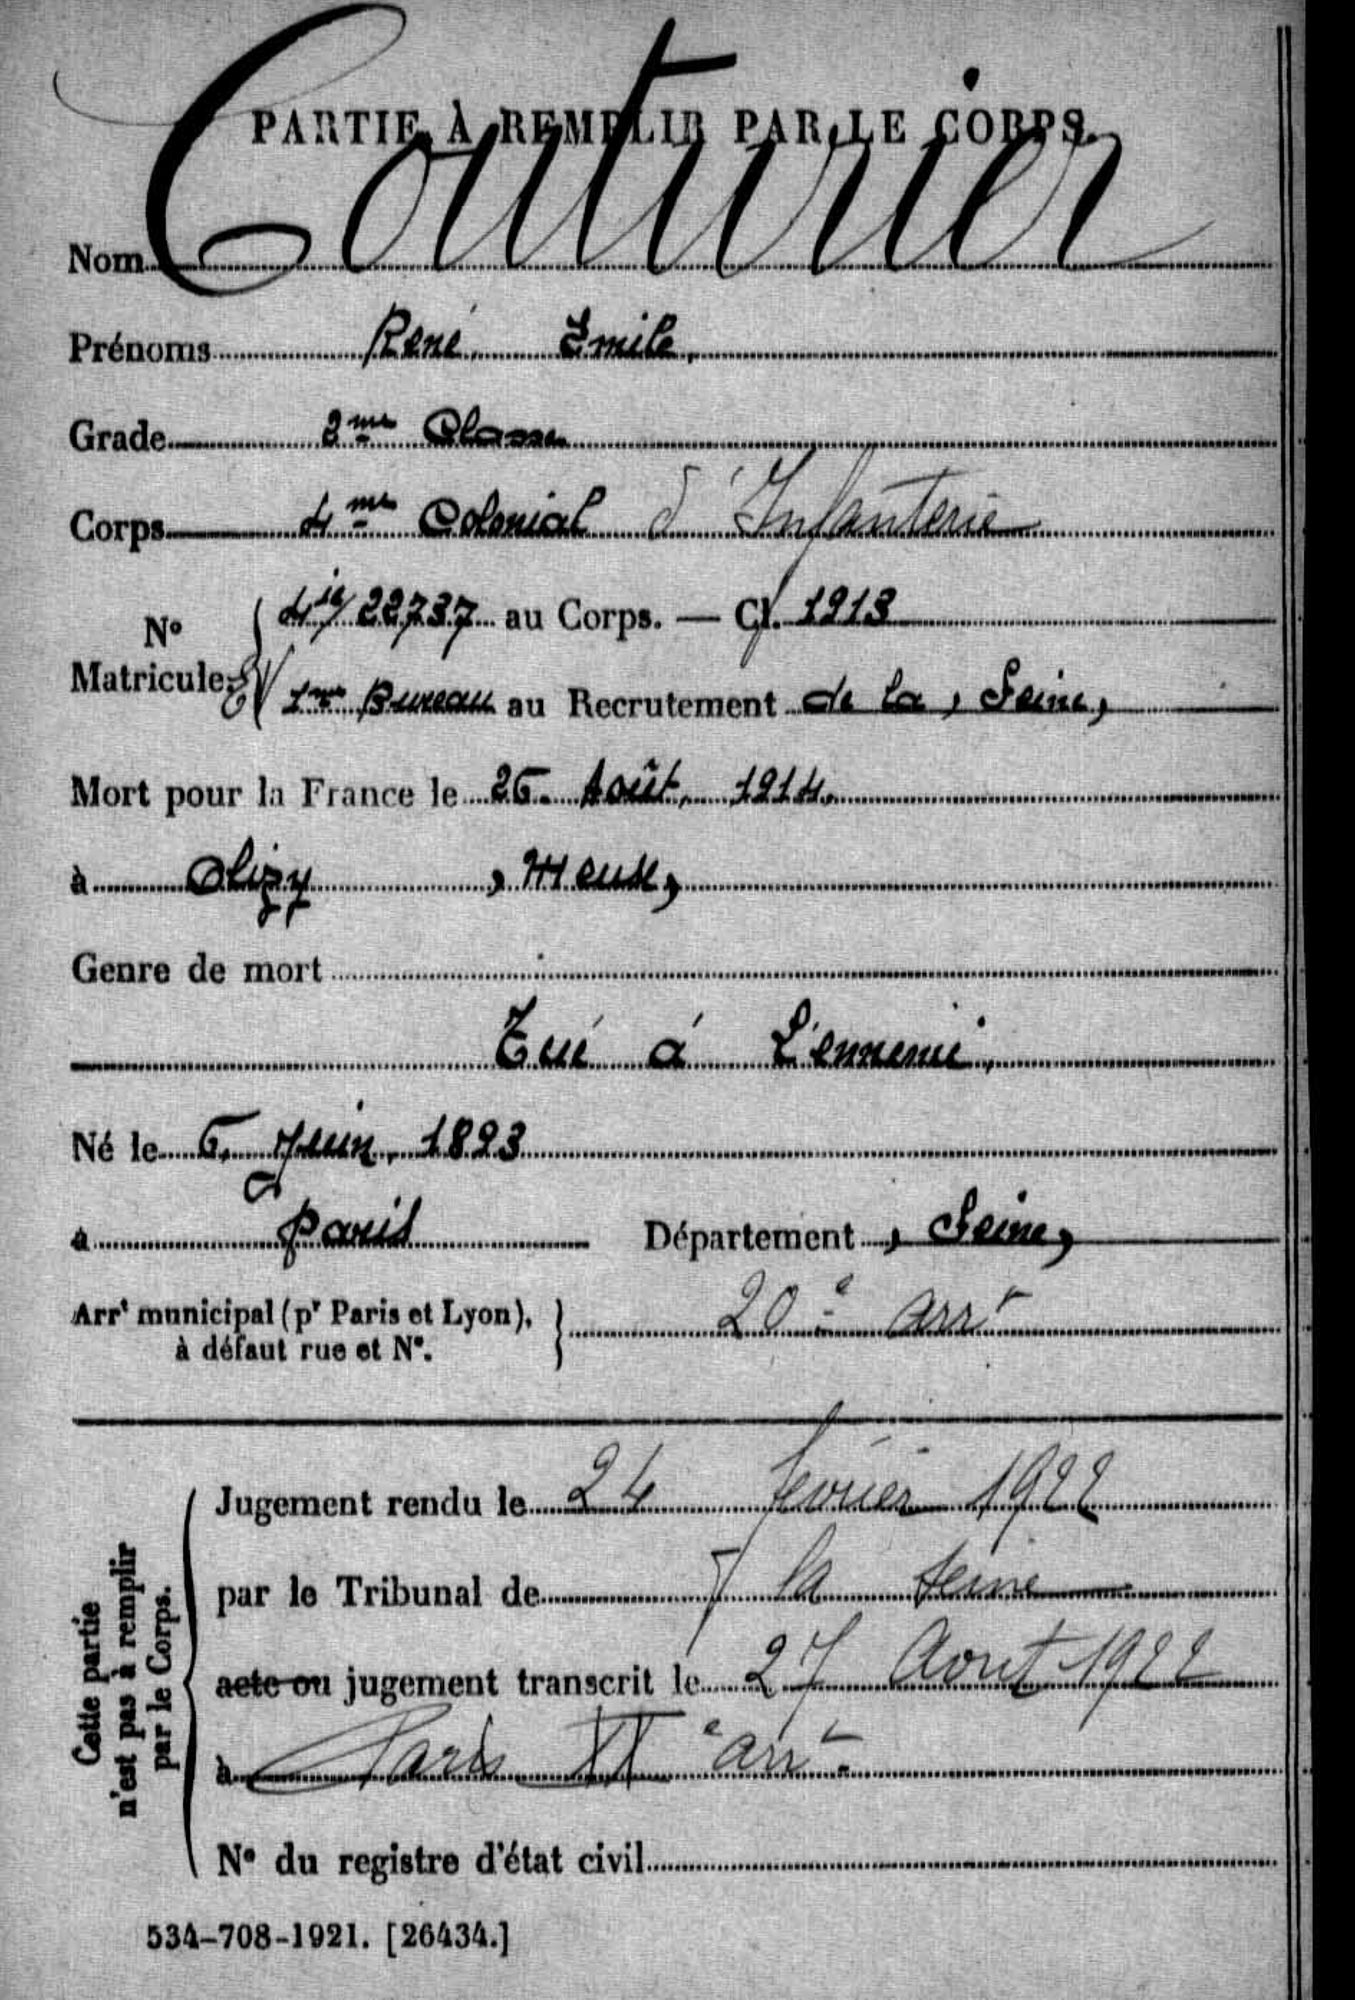 PARTIE À REMPLIR PAR LE CORPS.
Nom Couturier
Prénoms René, Emile,
Grade 2me Classe
Corps 4me Colonial d'Infanterie
No Matricule 4ie/22737 au Corps. — Cl. 1913
1me Bureau au Recrutement de la, Seine,
Mort pour la France le 26. Août, 1914.
à Olizy, Meuse,
Genre de mort
Tué à L'ennemi,
Né le 6, Juin, 1893
à Paris Département, Seine,
Arrt municipal (pr Paris et Lyon), 20e arrt
à défaut rue et No.
Cette partie n'est pas à remplir par le Corps.
Jugement rendu le 24 février 1922
par le Tribunal de la Seine
acte ou jugement transcrit le 27 Aout 1922
à Paris XXe arrt
No du registre d'état civil
534-708-1921. [26434.]